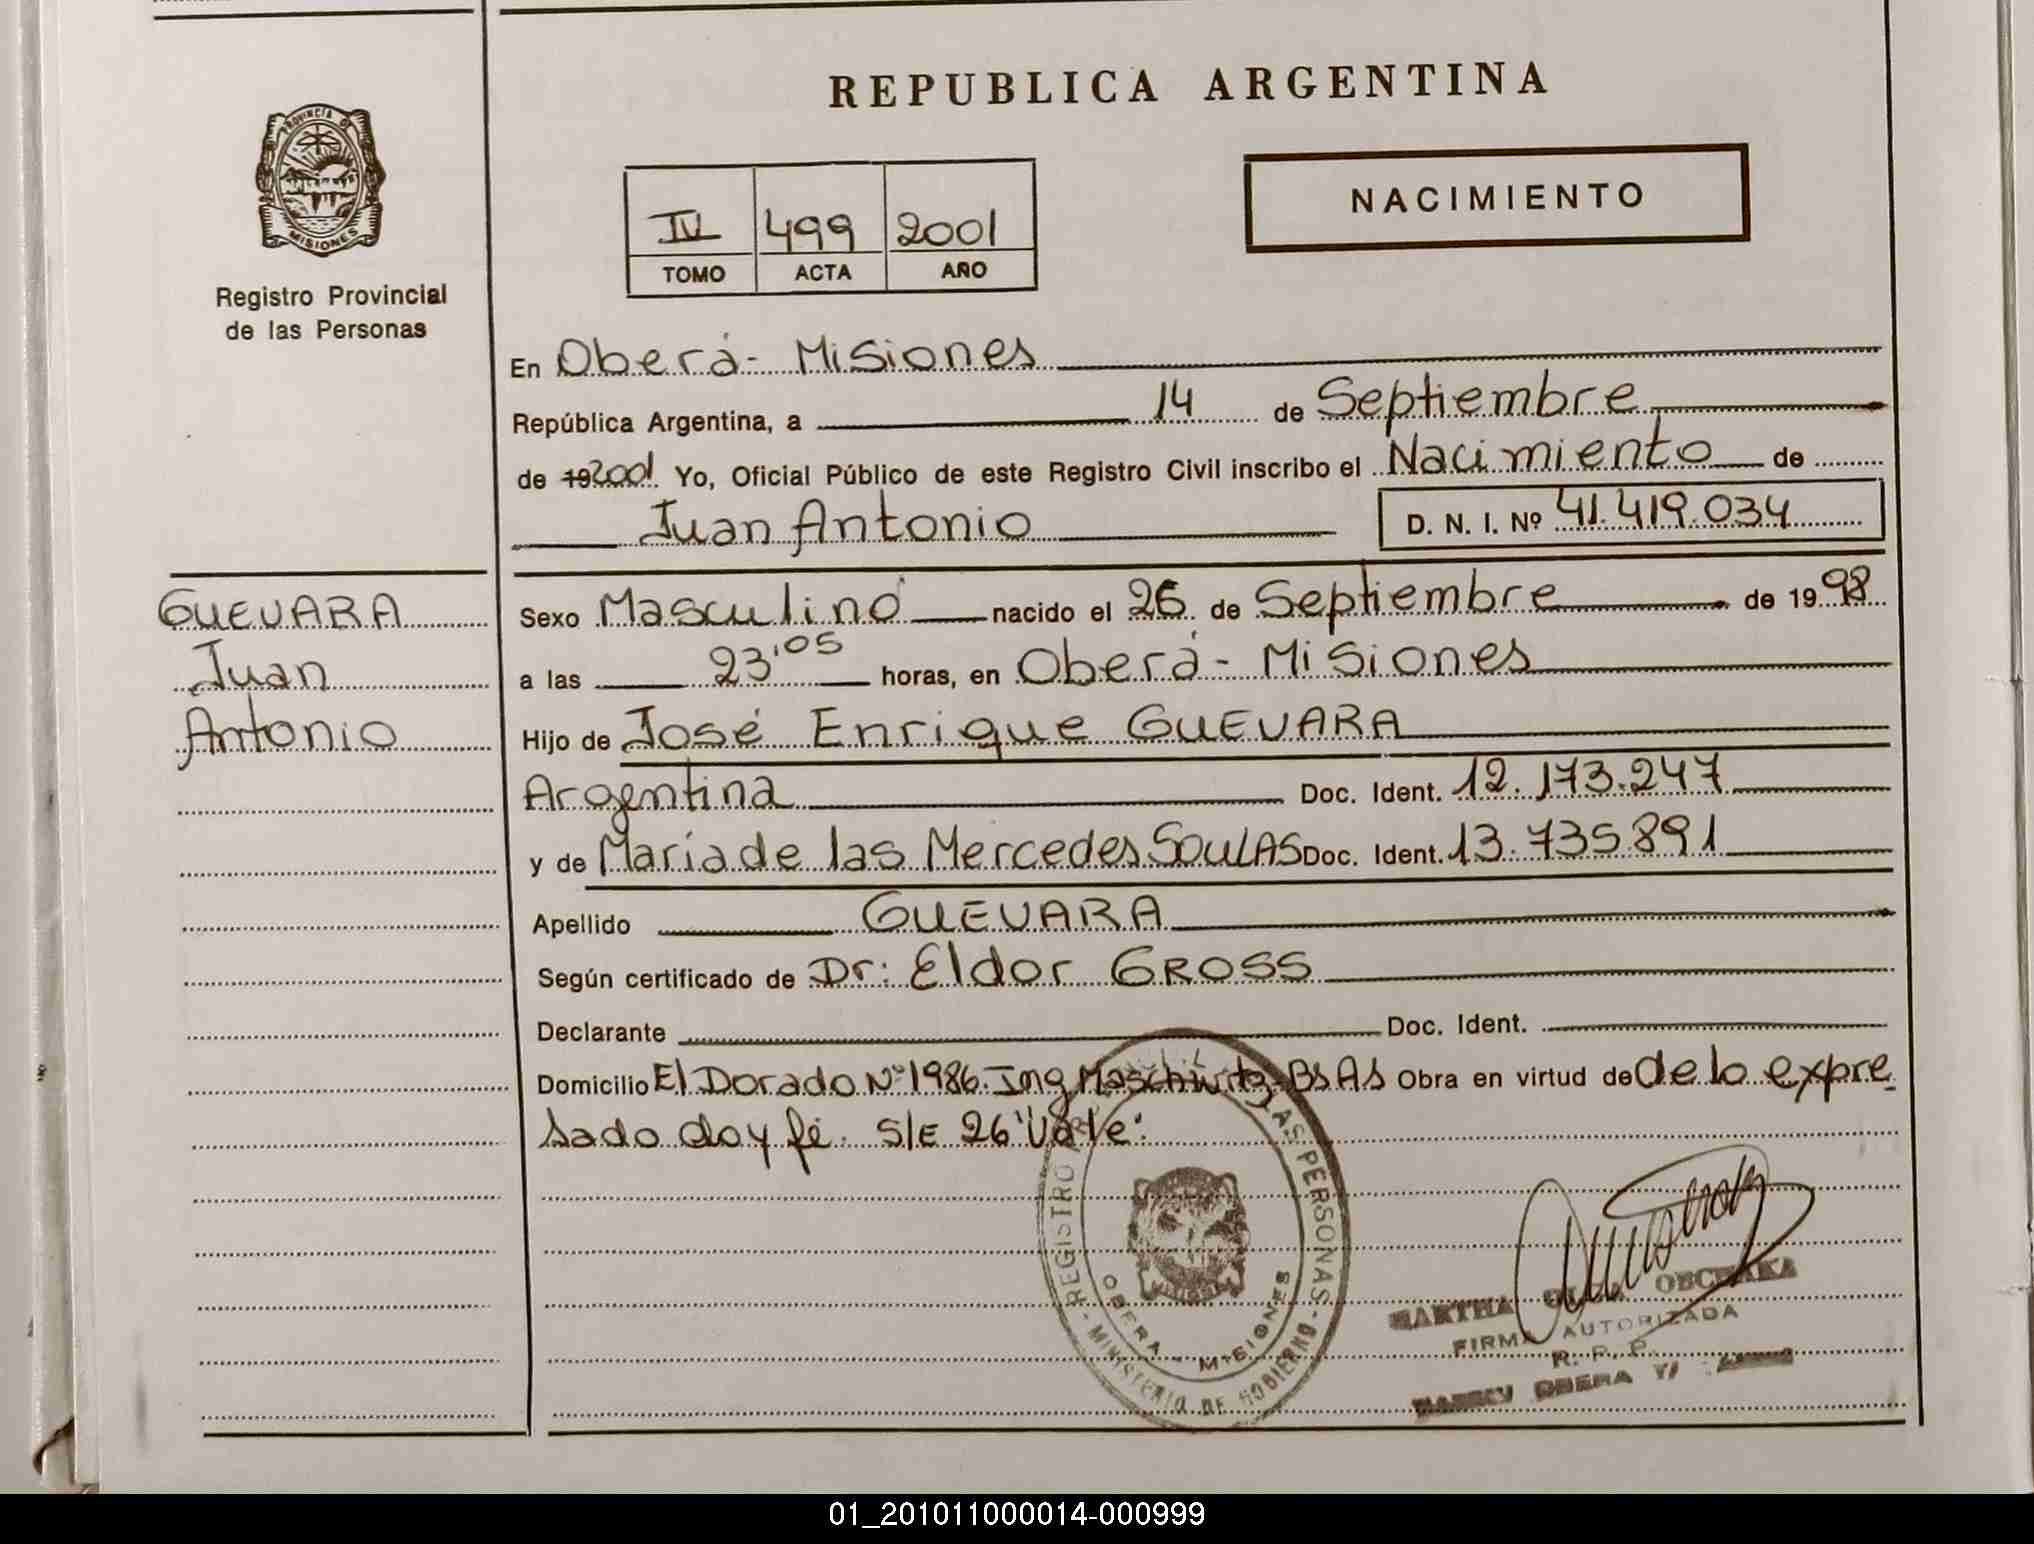 REPUBLICA ARGENTINA
PROVINCIA DE
MISIONES
Registro Provincial
de las Personas
NACIMIENTO
IV 499 2001
TOMO ACTA AÑO
En Oberá - Misiones
República Argentina, a 14 de Septiembre
de 192001 Yo, Oficial Público de este Registro Civil inscribo el Nacimiento de
Juan Antonio D. N. I. Nº 41.419.034
GUEVARA
Juan
Antonio
Sexo Masculino nacido el 26 de Septiembre de 1998
a las 23'05 horas, en Oberá - Misiones
Hijo de José Enrique GUEVARA
Argentina Doc. Ident. 12.173.247
y de María de las Mercedes SOULAS Doc. Ident. 13.735.891
Apellido GUEVARA
Según certificado de Dr: Eldor GROSS
Declarante Doc. Ident.
Domicilio El Dorado Nº 1986. Ing Maschwitz - Bs As Obra en virtud de de lo expre
sado doy fé. S/E 26 "Vale".
REGISTRO LAS PERSONAS -
- MINISTERIO DE GOBIERNO
OBERA - MISIONES
MARTHA OBCHAKA
FIRMA AUTORIZADA
R. P. P.
OBERA
01_201011000014-000999